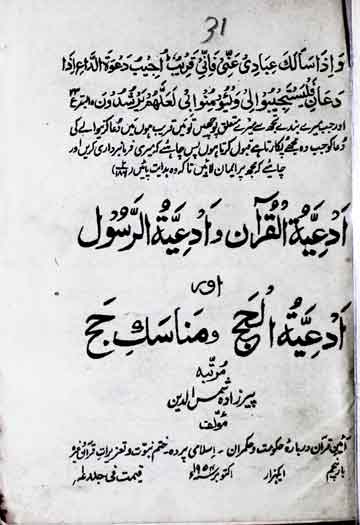 31
وَإِذَا سَأَلَكَ عِبَادِي عَنِّي فَإِنِّي قَرِيبٌ أُجِيبُ دَعْوَةَ الدَّاعِ إِذَا
دَعَانِ فَلْيَسْتَجِيبُوا لِي وَلْيُؤْمِنُوا بِي لَعَلَّهُمْ يَرْشُدُونَ
اور جب میرے بندے تجھ سے میرے متعلق پوچھیں تو میں قریب ہوں میں دعا کرنیوالے کی
دعا کو جب وہ مجھے پکارتا ہے قبول کرتا ہوں پس چاہئے کہ میری فرمانبرداری کریں اور
چاہئے کہ مجھ پر ایمان لائیں تاکہ وہ ہدایت پائیں
اَدْعِیَّةُ الْقُرْآن وَ اَدْعِیَّةُ الرَّسُول
اور
اَدْعِیَّةُ الْحَجّ و مَنَاسِكِ حَجّ
مُرتّبہ
پیرزادہ شمس الدین
مؤلف
آئین قرآن دربارہ حکومت و حکمران ۔ اسلامی پردہ ۔ ختم نبوت و تعزیرات قرآن وغیرہ
ایکہزار اکتوبر ۱۹۵۲ء قیمت فی جلد